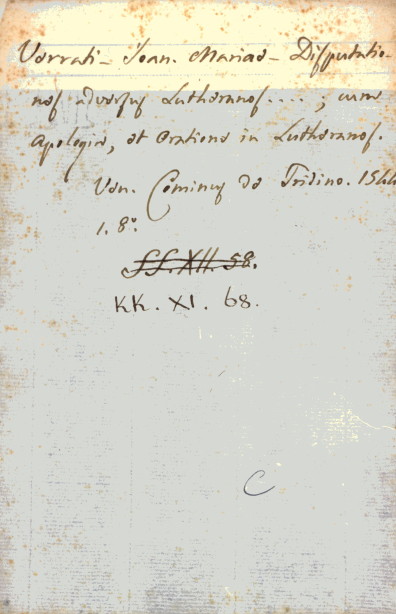 Verrati - Joan. Mariae - Disputatio-
nes adversus Lutheranos. . . . ; cum
Apologia, et Oratione in Lutheranos.
Ven. Cominus de Tridino. 1544
1. 8°
SS. XII. 58.
KK. XI. 68.
C